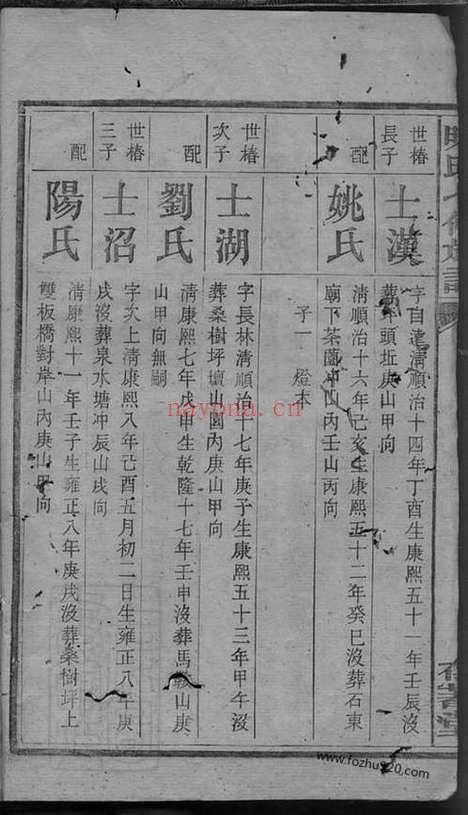 世椿
長子
士漢
字自遠清順治十四年丁酉生康熙五十一年壬辰沒
頭坵庚山甲向
配
姚氏
清順治十六年己亥生康熙五十二年癸巳沒葬石東
廟下茶園冲山內壬山丙向
子一 燈末
世椿
次子
士湖
字長林清順治十七年庚子生康熙五十三年甲午沒
葬桑樹坪壇山園內庚山甲向
配
劉氏
清康熙七年戊申生乾隆十七年壬申沒葬馬鞍山庚
山甲向無嗣
世椿
三子
士沼
字次上清康熙八年己酉五月初二日生雍正八年庚
戌沒葬泉水塘冲辰山戌向
配
陽氏
清康熙十一年壬子生雍正八年庚戌沒葬桑樹坪上
雙板橋對岸山內庚山甲向
nayona.cn
www.fozhu920.com